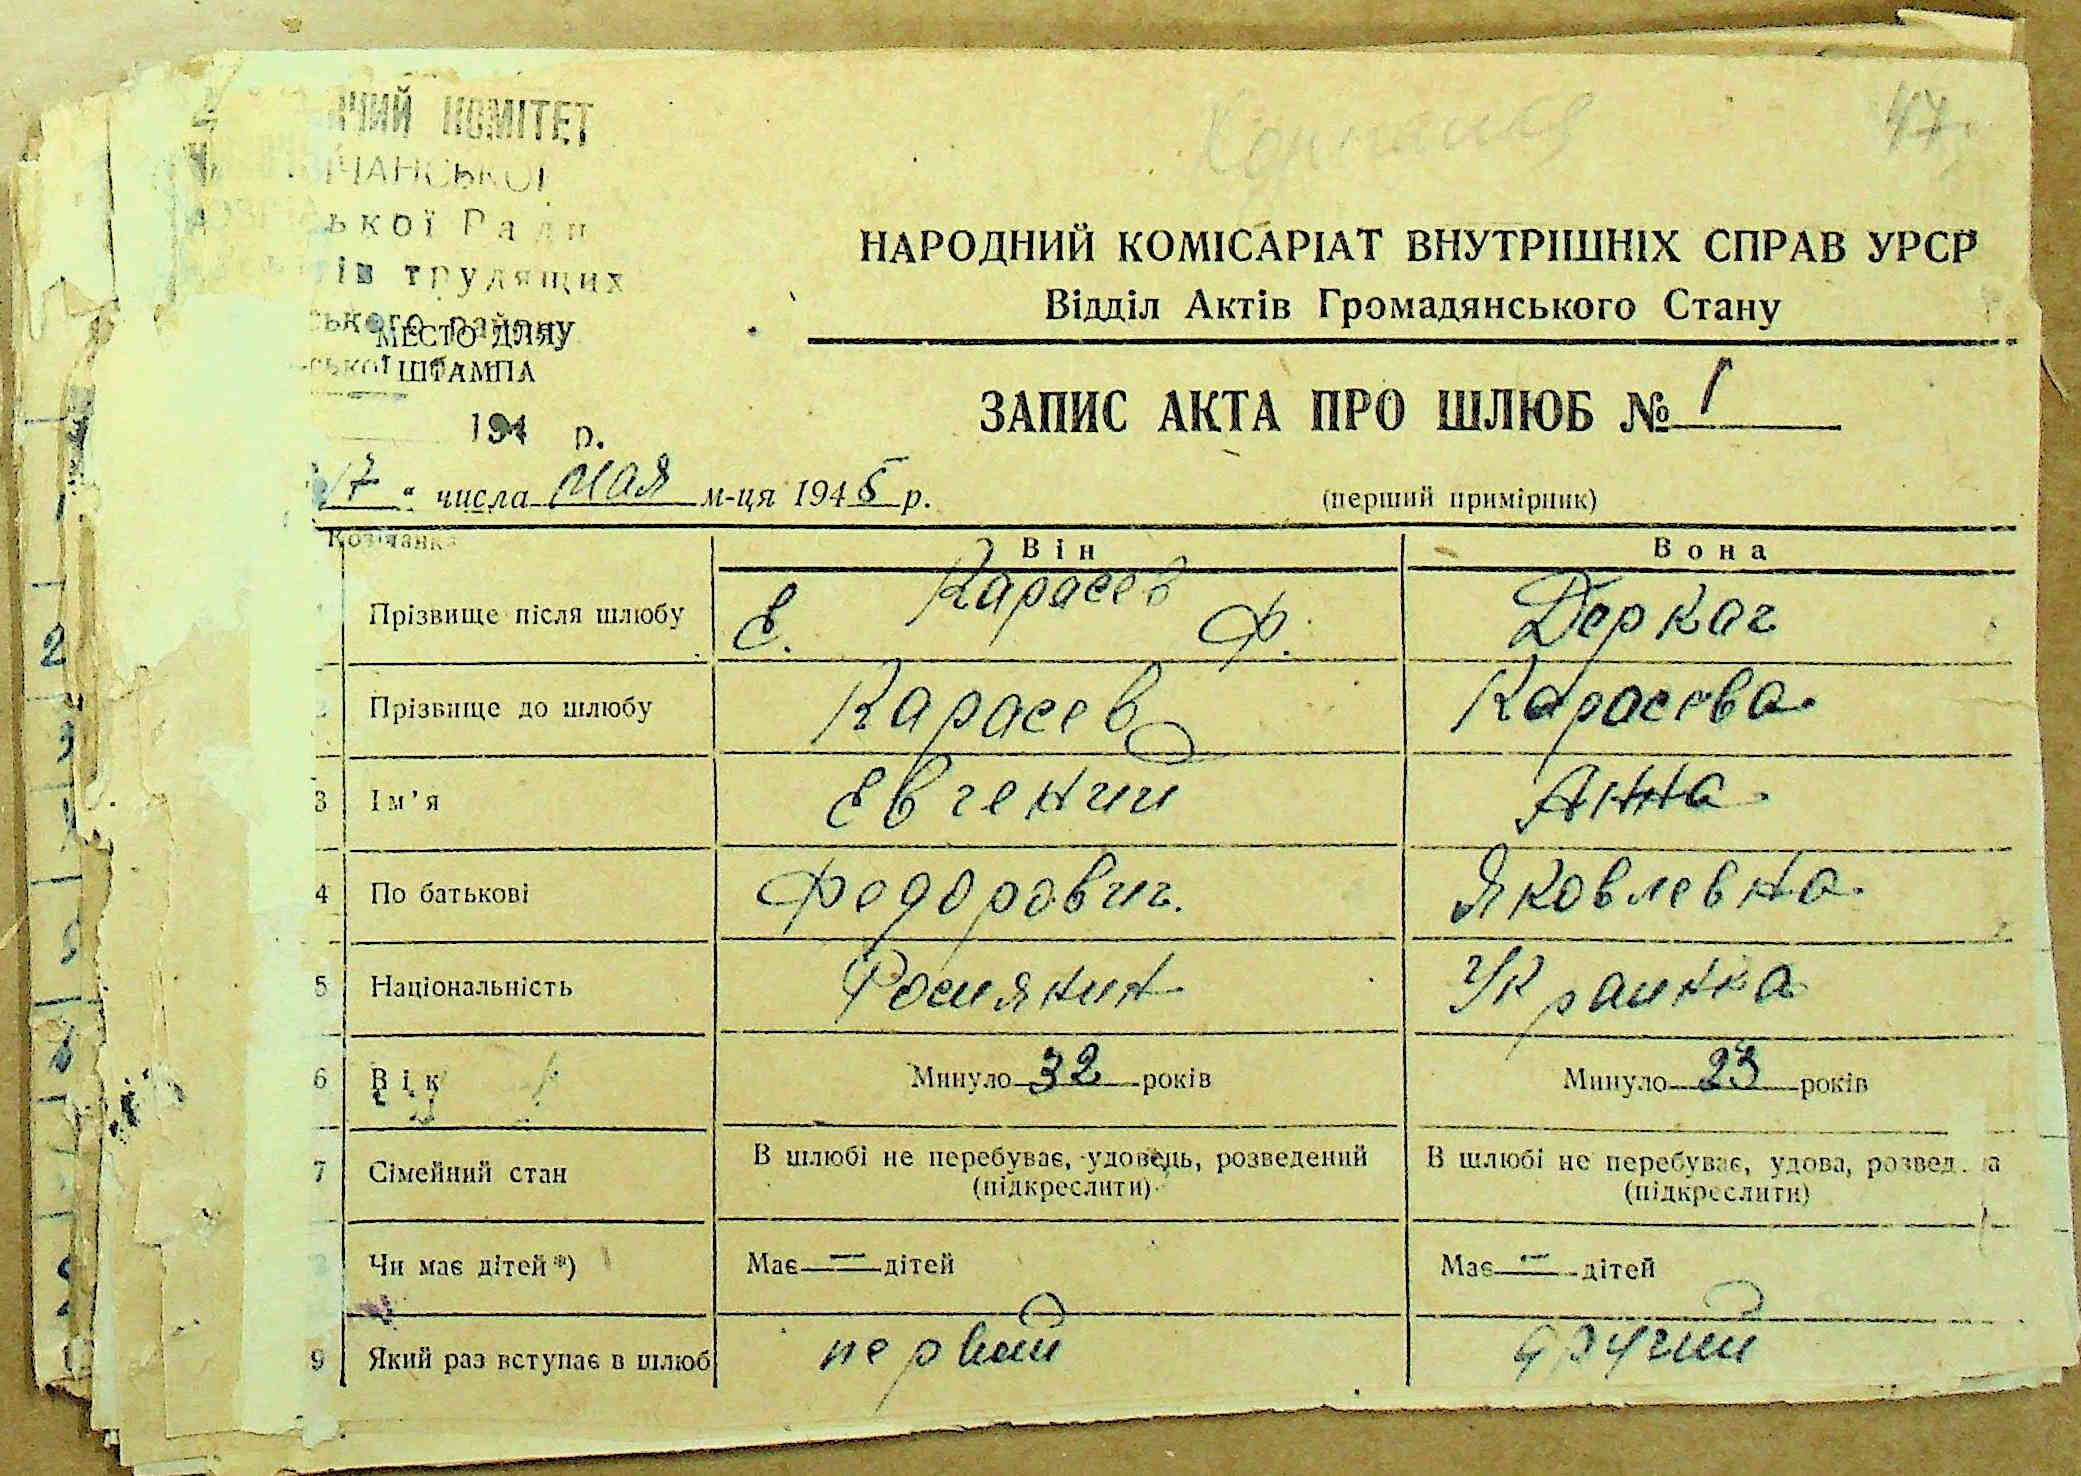 КОМІТЕТ
47.
Ради
трудящих
НАРОДНИЙ КОМІСАРІАТ ВНУТРІШНІХ СПРАВ УРСР
Відділ Актів Громадянського Стану
району
МЕСТО ДЛЯ
ШТАМПА
ЗАПИС АКТА ПРО ШЛЮБ № 1
194 р.
17 " числа мая м-ця 1945 р.
(перший примірник)
Він Вона
Прізвище після шлюбу Е. Карасев Ф. Деркач
2 Прізвище до шлюбу Карасев Карасева
3 Ім’я Евгений Анна
4 По батькові Федорович. Яковлевна
5 Національність Росиянин Украинка
6 Вік Минуло 32 років Минуло 23 років
7 Сімейний стан В шлюбі не перебуває, удовець, розведений В шлюбі не перебуває, удова,
(підкреслити) (підкреслити)
Чи має дітей*) Має — дітей Має — дітей
9 Який раз вступає в шлюб первый другий